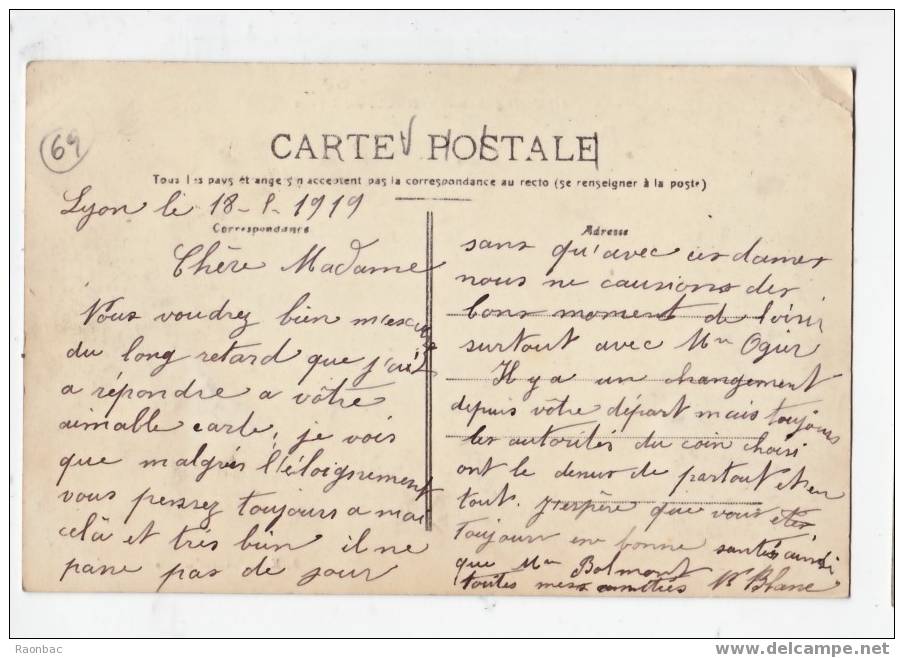 69
CARTE POSTALE
Tous les pays étrangers n'acceptent pas la correspondance au recto (se renseigner à la poste)
Lyon le 18-8-1919
Correspondance
Chère Madame
Vous voudrez bien m'escuse
du long retard que j'ai
a répondre a vôtre
aimable carte, je vois
que malgrés l'éloignement
vous pensez toujours a moi
celà et très bien il ne
passe pas de jour
Adresse
sans qu'avec ces dames
nous ne causions des
bons moment de loisir
surtout avec Mme Ogier
Il y a un changement
depuis vôtre départ mais toujours
les autorités du coin choisi
ont le denus de partout et en
tout. J'espère que vous êtes
toujours en bonne santés ainsi
que Mme Balmont
toutes mes amitiés Ve Blanc
Raonbac
www.delcampe.net